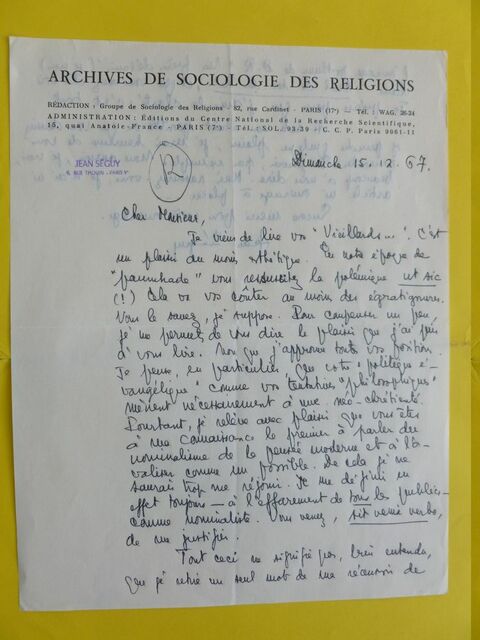 ARCHIVES DE SOCIOLOGIE DES RELIGIONS
RÉDACTION : Groupe de Sociologie des Religions - 82, rue Cardinet - PARIS (17e) — Tél. : WAG. 26-24
ADMINISTRATION : Éditions du Centre National de la Recherche Scientifique,
15, quai Anatole-France - PARIS (7e) - Tél. : SOL. 93-39 - C. C. P. Paris 9061-11
JEAN SÉGUY
6, RUE THOUIN - PARIS Ve
R
Dimanche 15.12.67.
Cher Monsieur,
Je viens de lire vos "Vieillards...". C'est
un plaisir du moins esthétique. En notre époque de
vous ressuscitez la polémique ut sic
(!) Cela va vous coûter au moins des égratignures.
Vous le savez, je suppose. Pour compenser un peu,
je me permets de vous dire le plaisir que j'ai pris
à vous lire. Non que j'approuve toutes vos positions.
Je pense, en particulier que votre "politique é-
vangélique" comme vos tentatives "philosophiques"
mènent nécessairement à une néo-chrétienté.
Pourtant, je relève avec plaisir que vous êtes
à ma connaissance le premier à parler du
nominalisme de la pensée moderne et à l'é-
valuer comme un possible. De cela je ne
saurais trop me réjouir. Je me définis en
effet toujours — à l'effarement de tous les publics —
comme nominaliste. Vous venez, sit venia verbo,
de me justifier.
Tout ceci ne signifie pas, bien entendu,
que je retire un seul mot de ma recension de